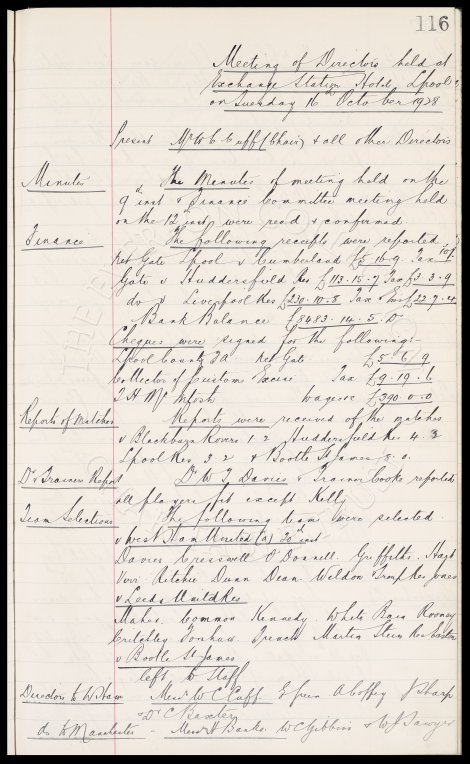 116
Meeting of Directors held at
Exchange Station Hotel, Lpool
on Tuesday 16 October 1928
Present Mr W C Cuff (Chair) & all other Directors
Minutes The Minutes of meeting held on the
9th inst & Finance Committee meeting held
on the 12th inst were read & confirmed.
Finance The following receipts were reported
Net Gate Lpool v Cumberland £5.16.9. Tax
Gate v Huddersfield Res £113.15.7 Tax £3.3.9
do v Liverpool Res £230.10.8 Tax & £22.7.4
Bank Balance £8483.14.5.
Cheques were signed for the following:-
Lpool County FA Net Gate £5/6/9
Collector of Customs Excise Tax £9.19.6
T H McIntosh Wages £390.0.0
Reports of Matches Reports were received of the matches
v Blackburn Rovers 1.2 Huddersfield Res 4.3
Lpool Res 3.2 & Bootle St James 8.0.
Dr & Trainers Report Dr W J Davies & Trainer Cooke reported
all players fit except Kelly
Team Selections The following teams were selected
v West Ham United (a) 20th inst
Davies Cresswell O'Donnell. Griffiths. Hart
Virr. Ritchie Dunn Dean. Weldon Troup Res Jones
v Leeds United Res
Maher. Common Kennedy. White Bain Rooney
Critchley Forshaw. French Martin Stein Res Easton
v Bootle St James
left to Staff
Directors to W Ham Messrs W C Cuff. E Green A Coffey J Sharp
& Dr C Baxter
do to Manchester - Messrs A Banks. W C Gibbins & W J Sawyer